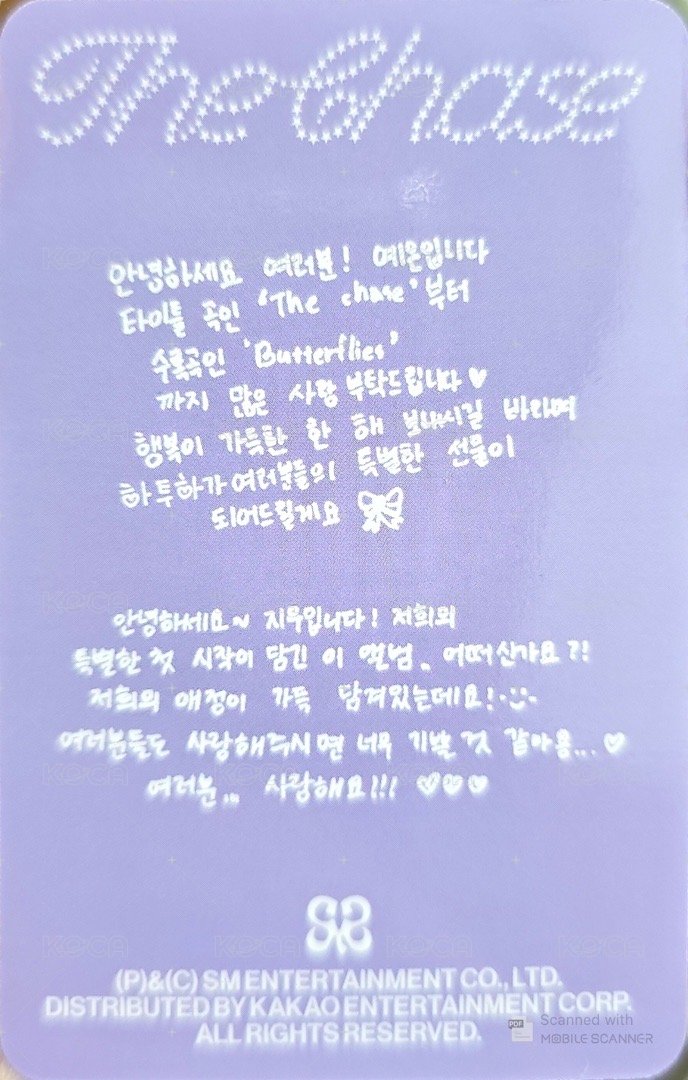 The Chase
안녕하세요 여러분! 예온입니다
타이틀 곡인 'The chase'부터
수록곡인 'Butterflies'
까지 많은 사랑 부탁드립니다♥
행복이 가득한 한 해 보내시길 바라며
하투하가 여러분들의 특별한 선물이
되어드릴게요
안녕하세요~ 지우입니다! 저희의
특별한 첫 시작이 담긴 이 앨범.. 어떠신가요?!
저희의 애정이 가득 담겨있는데요!
여러분들도 사랑해주시면 너무 기쁠 것 같아용...♡
여러분... 사랑해요!!! ♡♡♡
(P)&(C) SM ENTERTAINMENT CO., LTD.
DISTRIBUTED BY KAKAO ENTERTAINMENT CORP.
ALL RIGHTS RESERVED.
KOCA
PDF
Scanned with
MOBILE SCANNER